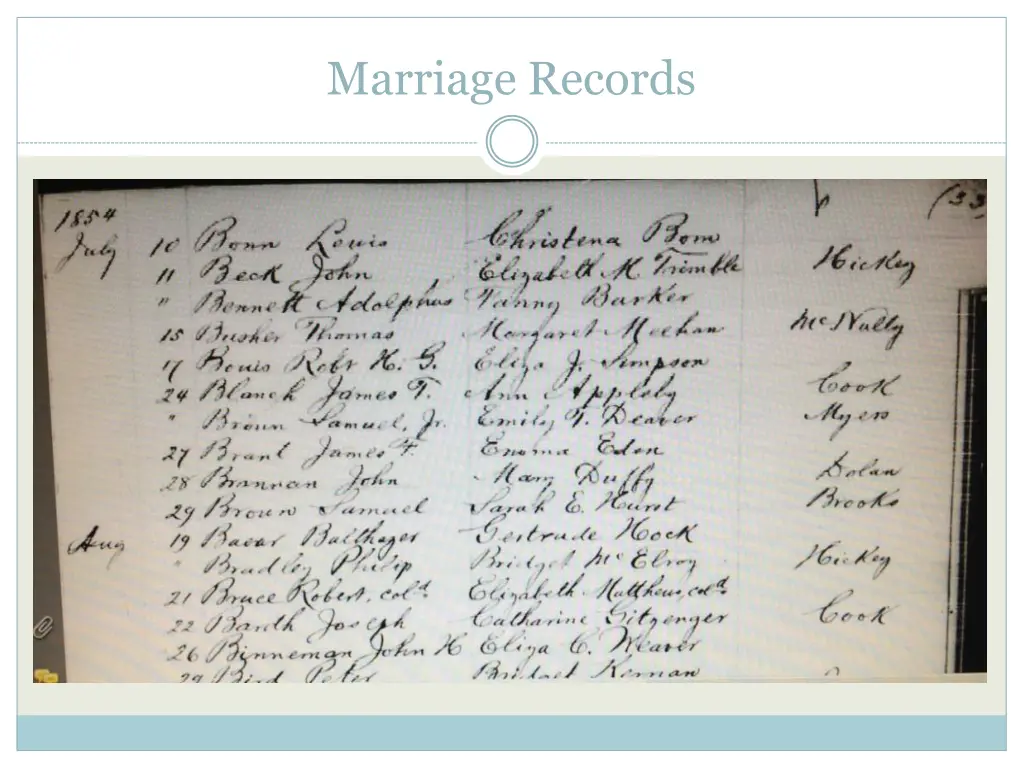 Marriage Records
(33)
1854
July 10 Bonn Louis Christena Bom
11 Beck John Elizabeth M. Trimble Hickey
" Bennett Adolphus Fanny Barker
15 Busher Thomas Margaret Meehan McNully
17 Bouis Robt H. G. Eliza J. Simpson
24 Blanch James T. Ann Appleby Cook
" Brown Samuel, Jr. Emily T. Deaver Myers
27 Brant James F. Emma Eden
28 Brannan John Mary Duffy Dolan
29 Brown Samuel Sarah E. Hurst Brooks
Aug 19 Bauar Balthazer Gertrude Hock
" Bradley Philip Bridget McElroy Hickey
21 Bruce Robert, cold. Elizabeth Matthews, cold.
22 Barth Joseph Catharine Gitzenger Cook
26 Binneman John H Eliza C. Weaver
29 Bird Peter Bridget Kernan